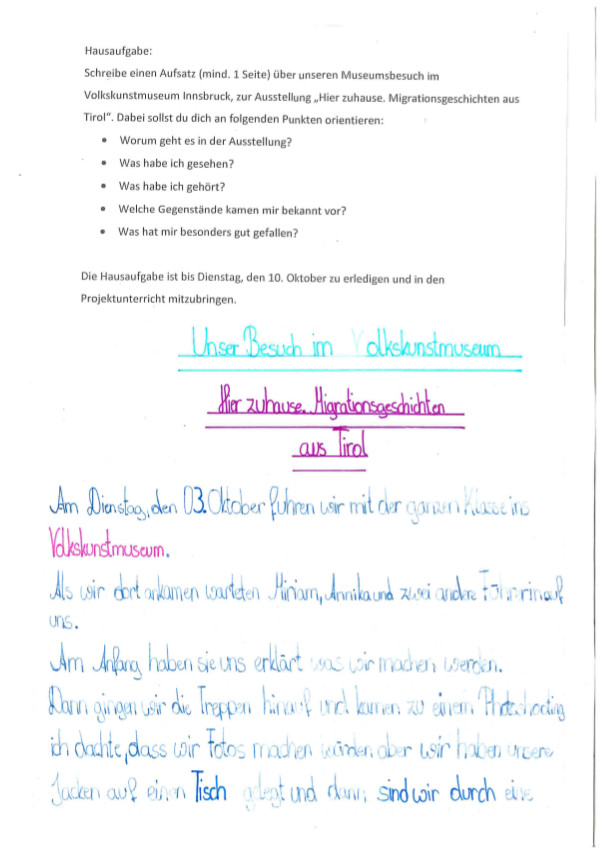 Hausaufgabe:
Schreibe einen Aufsatz (mind. 1 Seite) über unseren Museumsbesuch im
Volkskunstmuseum Innsbruck, zur Ausstellung „Hier zuhause. Migrationsgeschichten aus
Tirol“. Dabei sollst du dich an folgenden Punkten orientieren:
• Worum geht es in der Ausstellung?
• Was habe ich gesehen?
• Was habe ich gehört?
• Welche Gegenstände kamen mir bekannt vor?
• Was hat mir besonders gut gefallen?
Die Hausaufgabe ist bis Dienstag, den 10. Oktober zu erledigen und in den
Projektunterricht mitzubringen.
Unser Besuch im Volkskunstmuseum
Hier zuhause. Migrationsgeschichten
aus Tirol
Am Dienstag, den 03. Oktober fuhren wir mit der ganzen Klasse ins
Volkskunstmuseum.
Als wir dort ankamen warteten Miriam, Annika und zwei andre auf
uns.
Am Anfang haben sie uns erklärt was wir machen werden.
Dann gingen wir die Treppen hinauf und kamen zu einem
ich dachte, dass wir Fotos machen würden aber wir haben unsere
Jacken auf einen Tisch gelegt und dann, sind wir durch eine